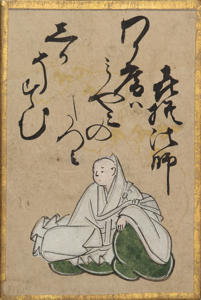 喜撰法師
わか庵ハ
みやこの
たつみ
しか
そすむ